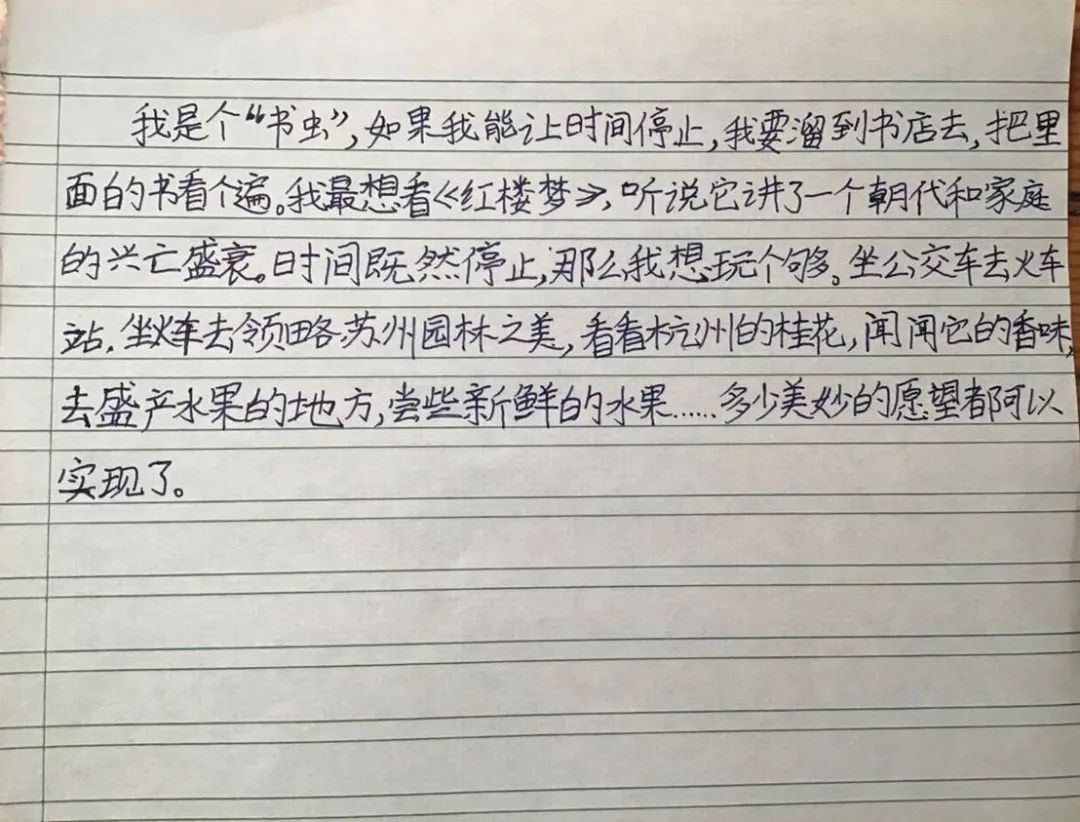 我是个“书虫”,如果我能让时间停止,我要溜到书店去,把里
面的书看个遍。我最想看《红楼梦》,听说它讲了一个朝代和家庭
的兴亡盛衰。时间既然停止,那么我想玩个够。坐公交车去火车
站.坐火车去领略苏州园林之美,看看杭州的桂花,闻闻它的香味,
去盛产水果的地方,尝些新鲜的水果……多少美妙的愿望都可以
实现了。